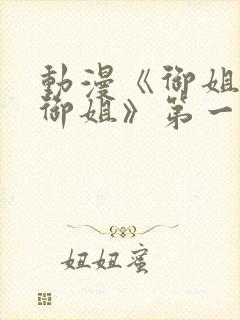 動漫《御姐
御姐》第一
妞妞蜜